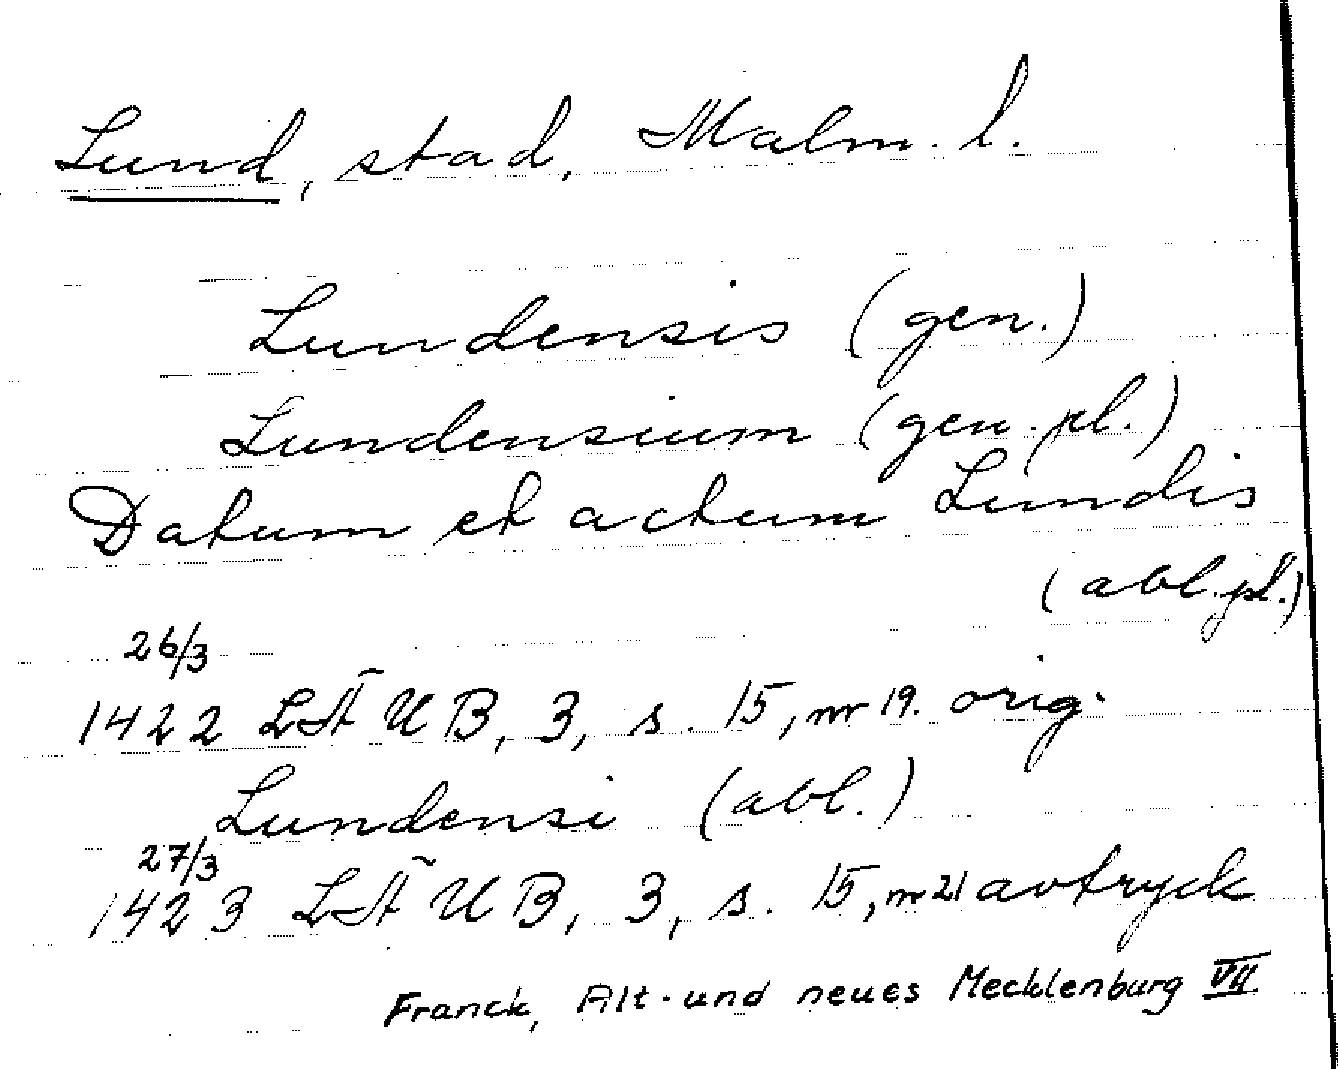 Lund, stad, Malm. l.
Lundensis (gen.)
Lundensium (gen. pl.)
Datum et actum Lundis
(abl. pl.)
26/3
1422 LÄUB, 3, s. 15, nr 19. orig.
Lundensi (abl.)
27/3
1423 LÄUB, 3, s. 15, nr 21 avtryck
Franck, Alt- und neues Mecklenburg VII